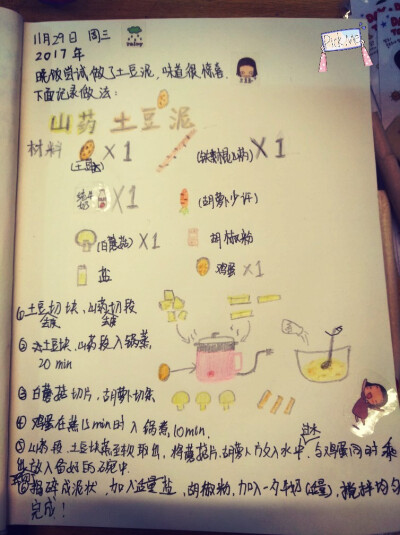 11月29日 周三
rainy
2017年
Pick me
晚饭尝试做了土豆泥，味道很惊喜。
下面记录做法：
山药土豆泥
材料 X1 X1
(土豆) (铁棍山药)
纯牛奶 X1 (胡萝卜少许)
(白蘑菇) X1 胡椒粉
盐 鸡蛋 X1
① 土豆切块，山药切段
去皮 去皮
② 土豆块，山药段入锅蒸
20 min
③ 白蘑菇切片，胡萝卜切条
④ 鸡蛋在蒸15min时入锅煮10min.
⑤ 山药段，土豆块蒸至软取出，将蘑菇片，胡萝卜入水中，与鸡蛋同时
放入备好的碗中
捣碎成泥状，加入适量盐，胡椒粉，加入牛奶(适量)，搅拌均匀
完成！